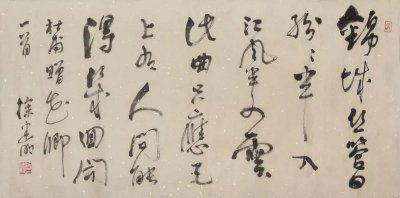 錦城絲管日
紛々半入
江風半入雲
此曲只應天
上有人間能
得幾回聞
杜甫贈花卿
一首 徐